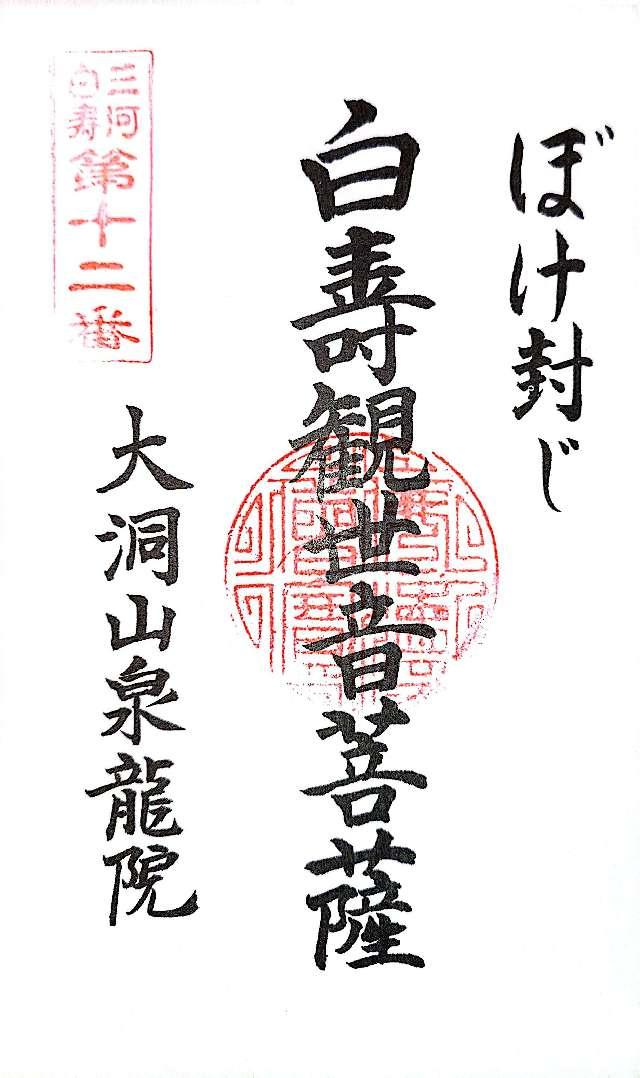 ぼけ封じ
白寿観世音菩薩
三河
白寿
第十二番
大洞山泉龍院